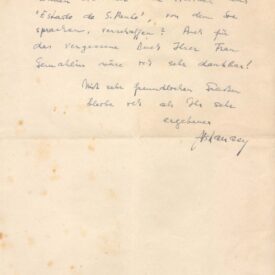 "Estado de S. Paulo", von dem Sie
sprachen, verschaffen? Auch für
das vergessene Buch Ihrer Frau
Gemahlin wäre ich sehr dankbar!
Mit sehr freundlichen Grüßen
bleibe ich als Ihr sehr
ergebener